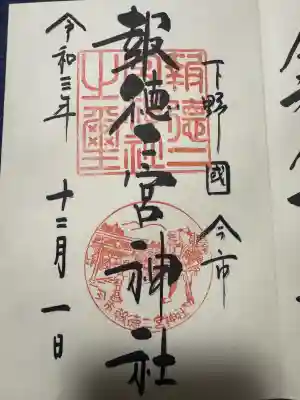 下野國 今市
報徳二宮神社
令和三年 十二月 一日
報徳二
宮神社
之璽